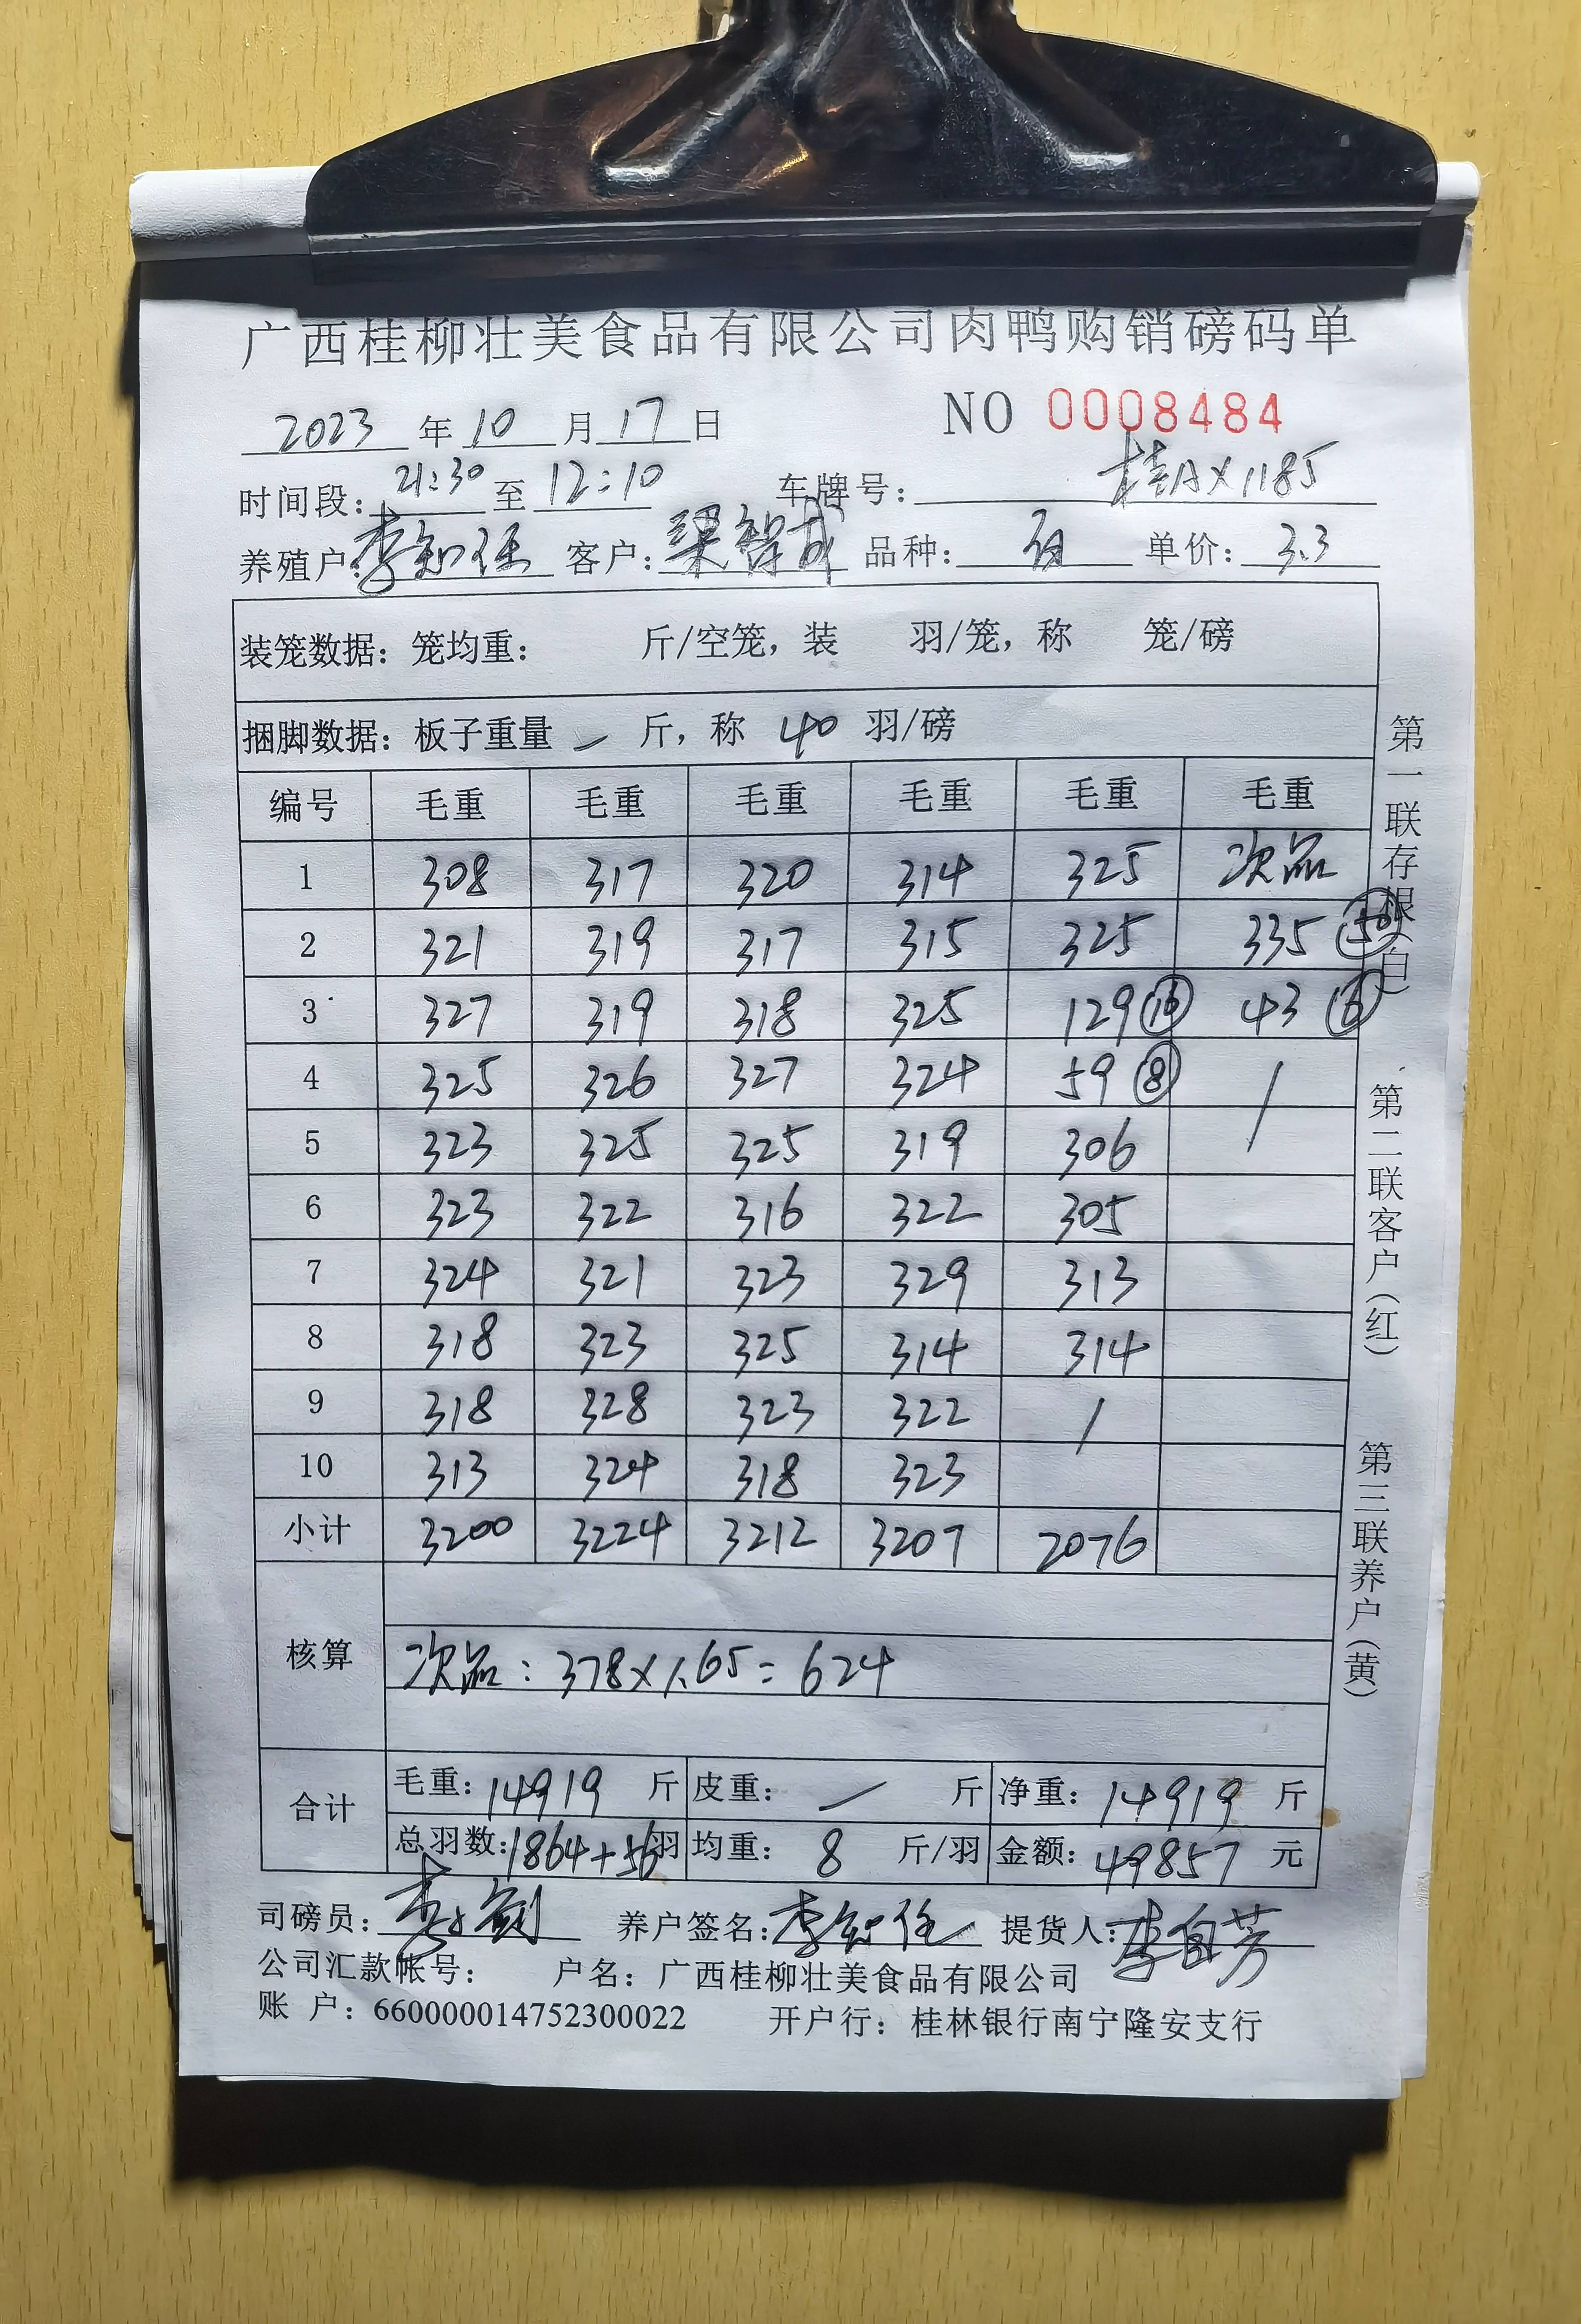 广西桂柳壮美食品有限公司肉鸭购销磅码单
2023年10月17日 NO 0008484
时间段：21:30至12:10 车牌号：桂AX1185
养殖户：李知任 客户：梁智成 品种：白 单价：3.3
装笼数据：笼均重： 斤/空笼，装 羽/笼，称 笼/磅
捆脚数据：板子重量 - 斤，称 40 羽/磅
编号 毛重 毛重 毛重 毛重 毛重 毛重
1 308 317 320 314 325 次品
2 321 319 317 315 325 335
3 327 319 318 325 129 16 43
4 325 326 327 324 59 8 /
5 323 325 325 319 306
6 323 322 316 322 305
7 324 321 323 329 313
8 318 323 325 314 314
9 318 328 323 322 /
10 313 324 318 323
小计 3200 3224 3212 3207 2076
核算
次品：378×1.65=624
合计 毛重：14919 斤 皮重： - 斤 净重：14919 斤
总羽数：1864+56羽 均重：8 斤/羽 金额：49857 元
司磅员： 养户签名：李知任 提货人：李自芳
公司汇款帐号： 户名：广西桂柳壮美食品有限公司
账 户：660000014752300022 开户行：桂林银行南宁隆安支行
第一联存根（白）
第二联客户（红）
第三联养户（黄）